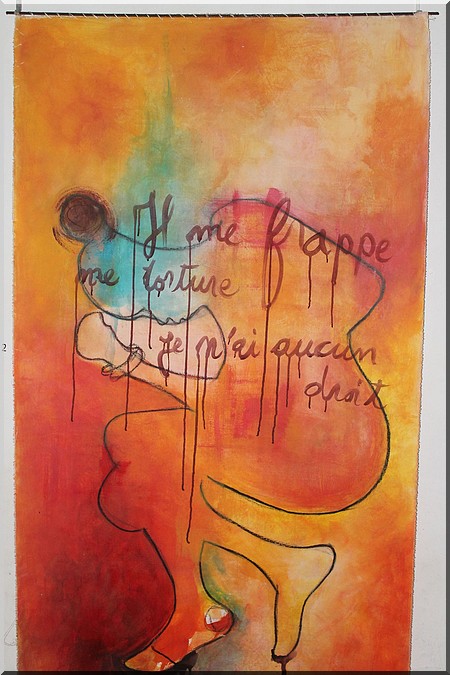 Il me frappe
me torture
je n'ai aucun
droit